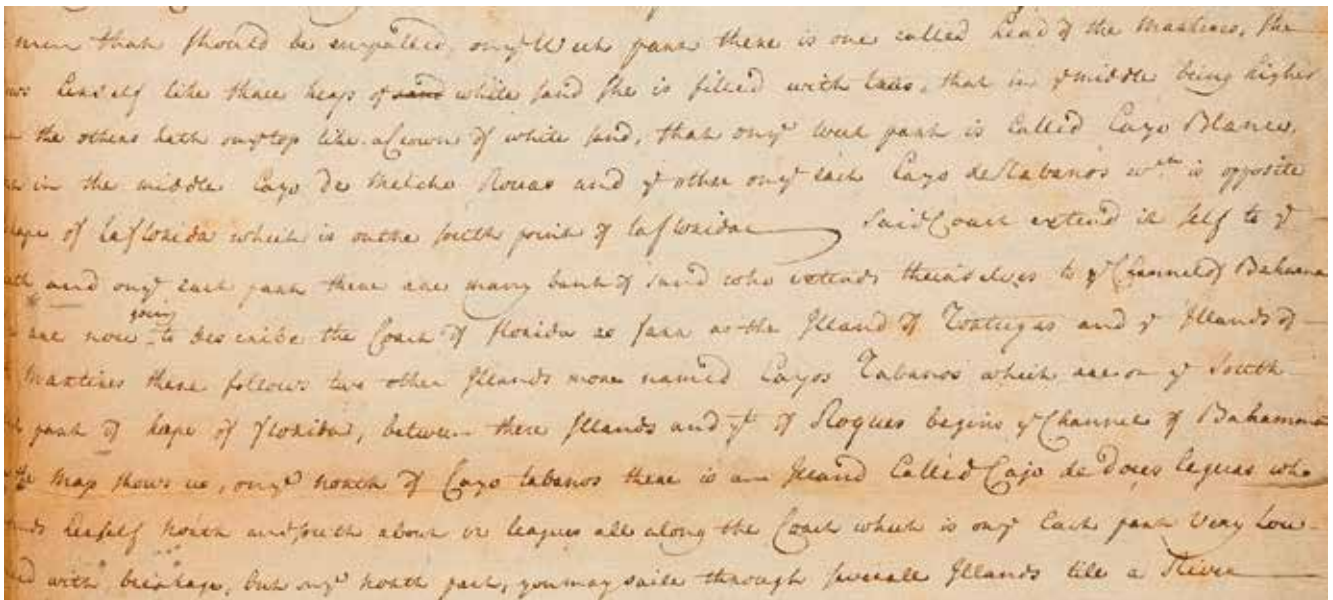 men that should be empalled, on yᵉ West part there is one called head of the Martires, she
ws herself like three heaps of sand white sand she is filled with trees, that in yᵉ middle being higher
the others hath on yᵉ top like a Crown of white sand, that on yᵉ west part is Called Cayo Blanco.
in the middle Cayo De Melcho Rouas and yᵉ other on yᵉ each Cayo de Tabanos wᶜʰ is opposite
hape of la florida which is on the south point of la florida Said Coast extend it self to yᵉ
th and on yᵉ east part there are many bank of sand who extends themselves to yᵉ Channel of Bahama
are now going to describe the Coast of florida as farr as the Illand of Tortugas and yᵉ Illands of
Martires there follows two other Illands more named Cayos Tabanos which are on yᵉ South
part of hape of florida, between there Illands and yᵗ of Roques begins yᵉ Channel of Bahama
the Map shows us, on yᵉ north of Cayo tabanos there is an Illand Called Cajo de Doces leguas who
nds herself north and south about leagues all along the Coast which is on yᵉ East part Very Low
ed with breakage, but on yᵉ north part, you may saile through severall Illands till a River